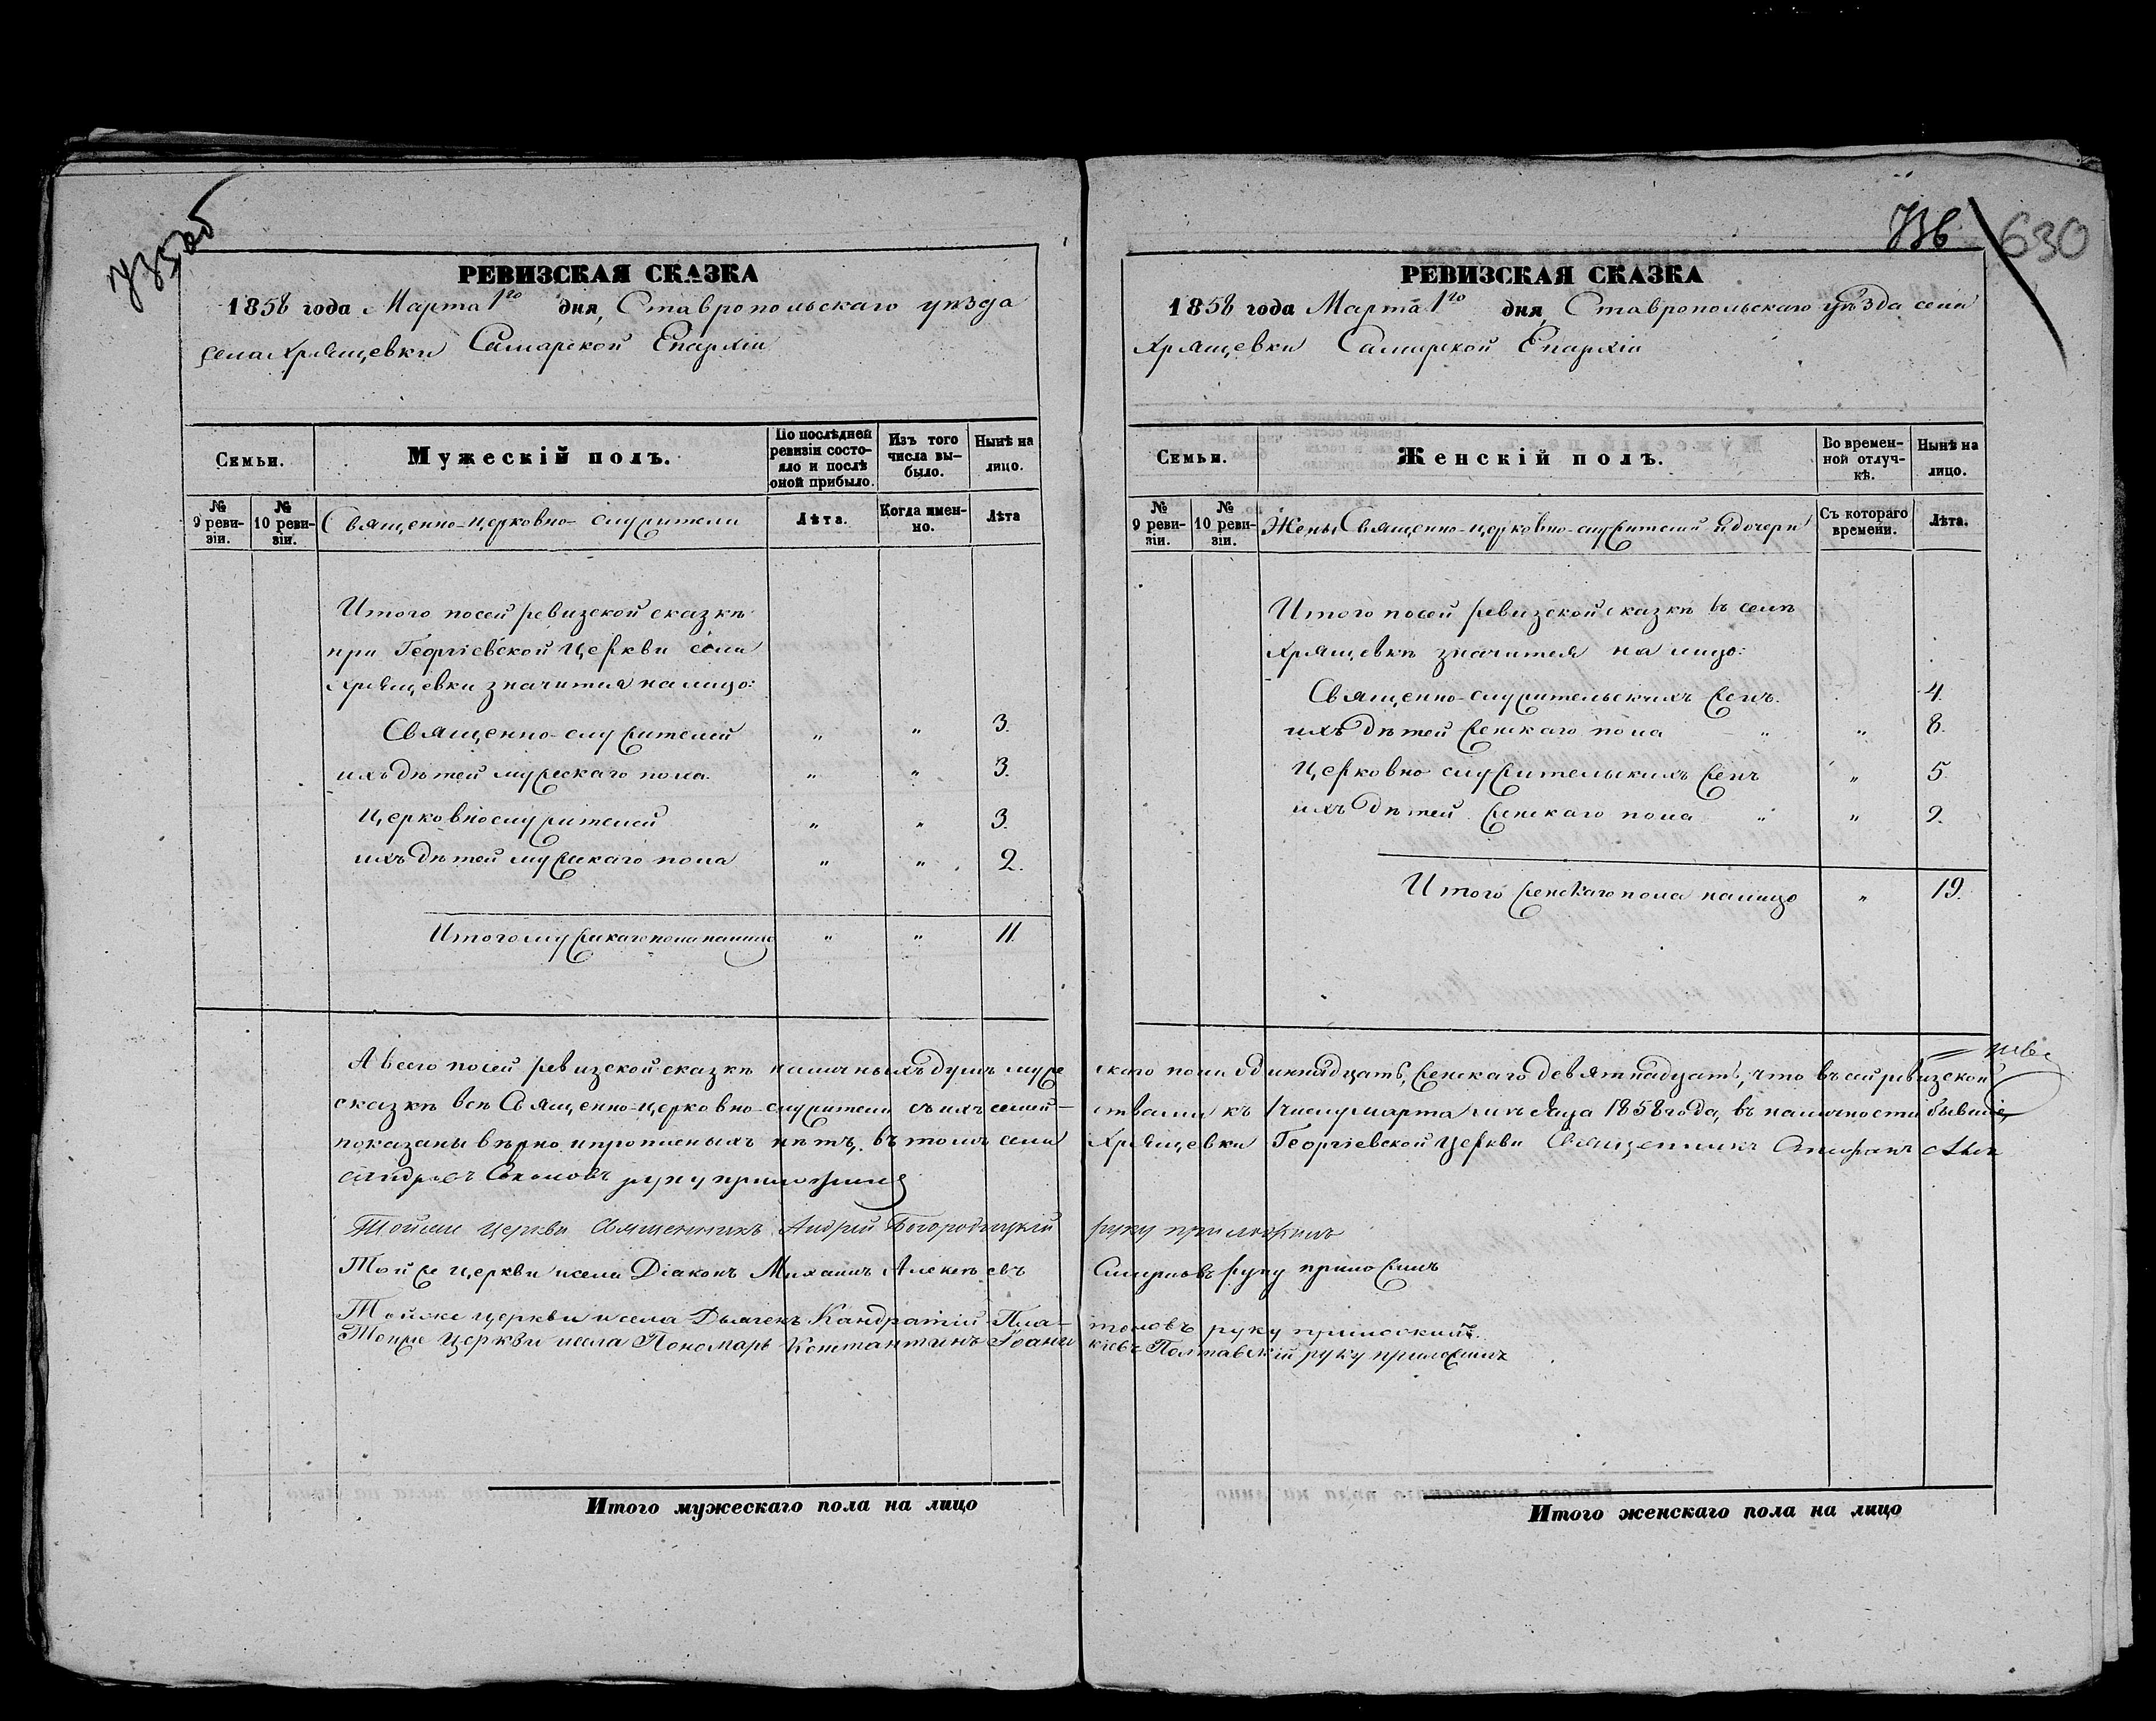 735об
РЕВИЗСКАЯ СКАЗКА
1858 года Марта 1го дня, Ставропольскаго уѣзда
села Хрящевки Самарской Епархіи
Семьи.
Мужескій полъ.
По послѣдней ревизіи состояло и послѣ оной прибыло.
Изъ того числа выбыло.
Нынѣ на лицо.
№ 9 ревизіи.
№ 10 ревизіи.
Священно-церковно-служители
Лѣта.
Когда именно.
Лѣта
Итого посей ревизской сказкѣ
при Георгіевской Церкви села
Хрящевки значится на лицо:
Священно-служителей „ „ 3.
ихъ дѣтей мужескаго пола. „ „ 3.
Церковнослужителей „ „ 3.
ихъ дѣтей мужскаго пола „ „ 2.
Итого мужскаго пола налицо „ „ 11.
736
630
РЕВИЗСКАЯ СКАЗКА
1858 года Марта 1го дня, Ставропольскаго уѣзда села
Хрящевки Самарской Епархіи
Семьи.
Женскій полъ.
Во временной отлучкѣ.
Нынѣ на лицо.
№ 9 ревизіи.
№ 10 ревизіи.
Жены Священно-церковно-служителей и дочери
Съ котораго времени.
Лѣта.
Итого посей ревизской сказкѣ въ селѣ
Хрящевкѣ значится на лицо:
Священно-служительскихъ женъ. 4.
ихъ дѣтей женскаго пола „ „ 8.
Церковно служительскихъ женъ „ 5.
ихъ дѣтей женскаго пола „ „ 2.
Итого женскаго пола налицо „ 19.
А всего посей ревизской сказкѣ наличныхъ душъ мужескаго пола одинадцать, женскаго девятнадцать, что въ сей ревизской
сказкѣ всѣ Священно-церковно-служители съ ихъ семействами къ 1 числу марта мѣсяца 1858 года, въ наличности бывшіе,
показаны вѣрно и прописныхъ нѣтъ, въ томъ села Хрящевки Георгіевской Церкви Священникъ Стефанъ Алек
сандровъ Соколовъ руку приложилъ
Тойже церкви Священникъ Андрей Богородицкій руку приложилъ
Той же церкви и села Діаконъ Михаилъ Алексѣевъ Смирновъ руку приложилъ
Тойже церкви и села Дьячекъ Кандратій Платоновъ руку приложилъ.
Тойже Церкви и села Пономарь Константинъ Іоаникіевъ Полтавскій руку приложилъ
Итого мужескаго пола на лицо
Итого женскаго пола на лицо